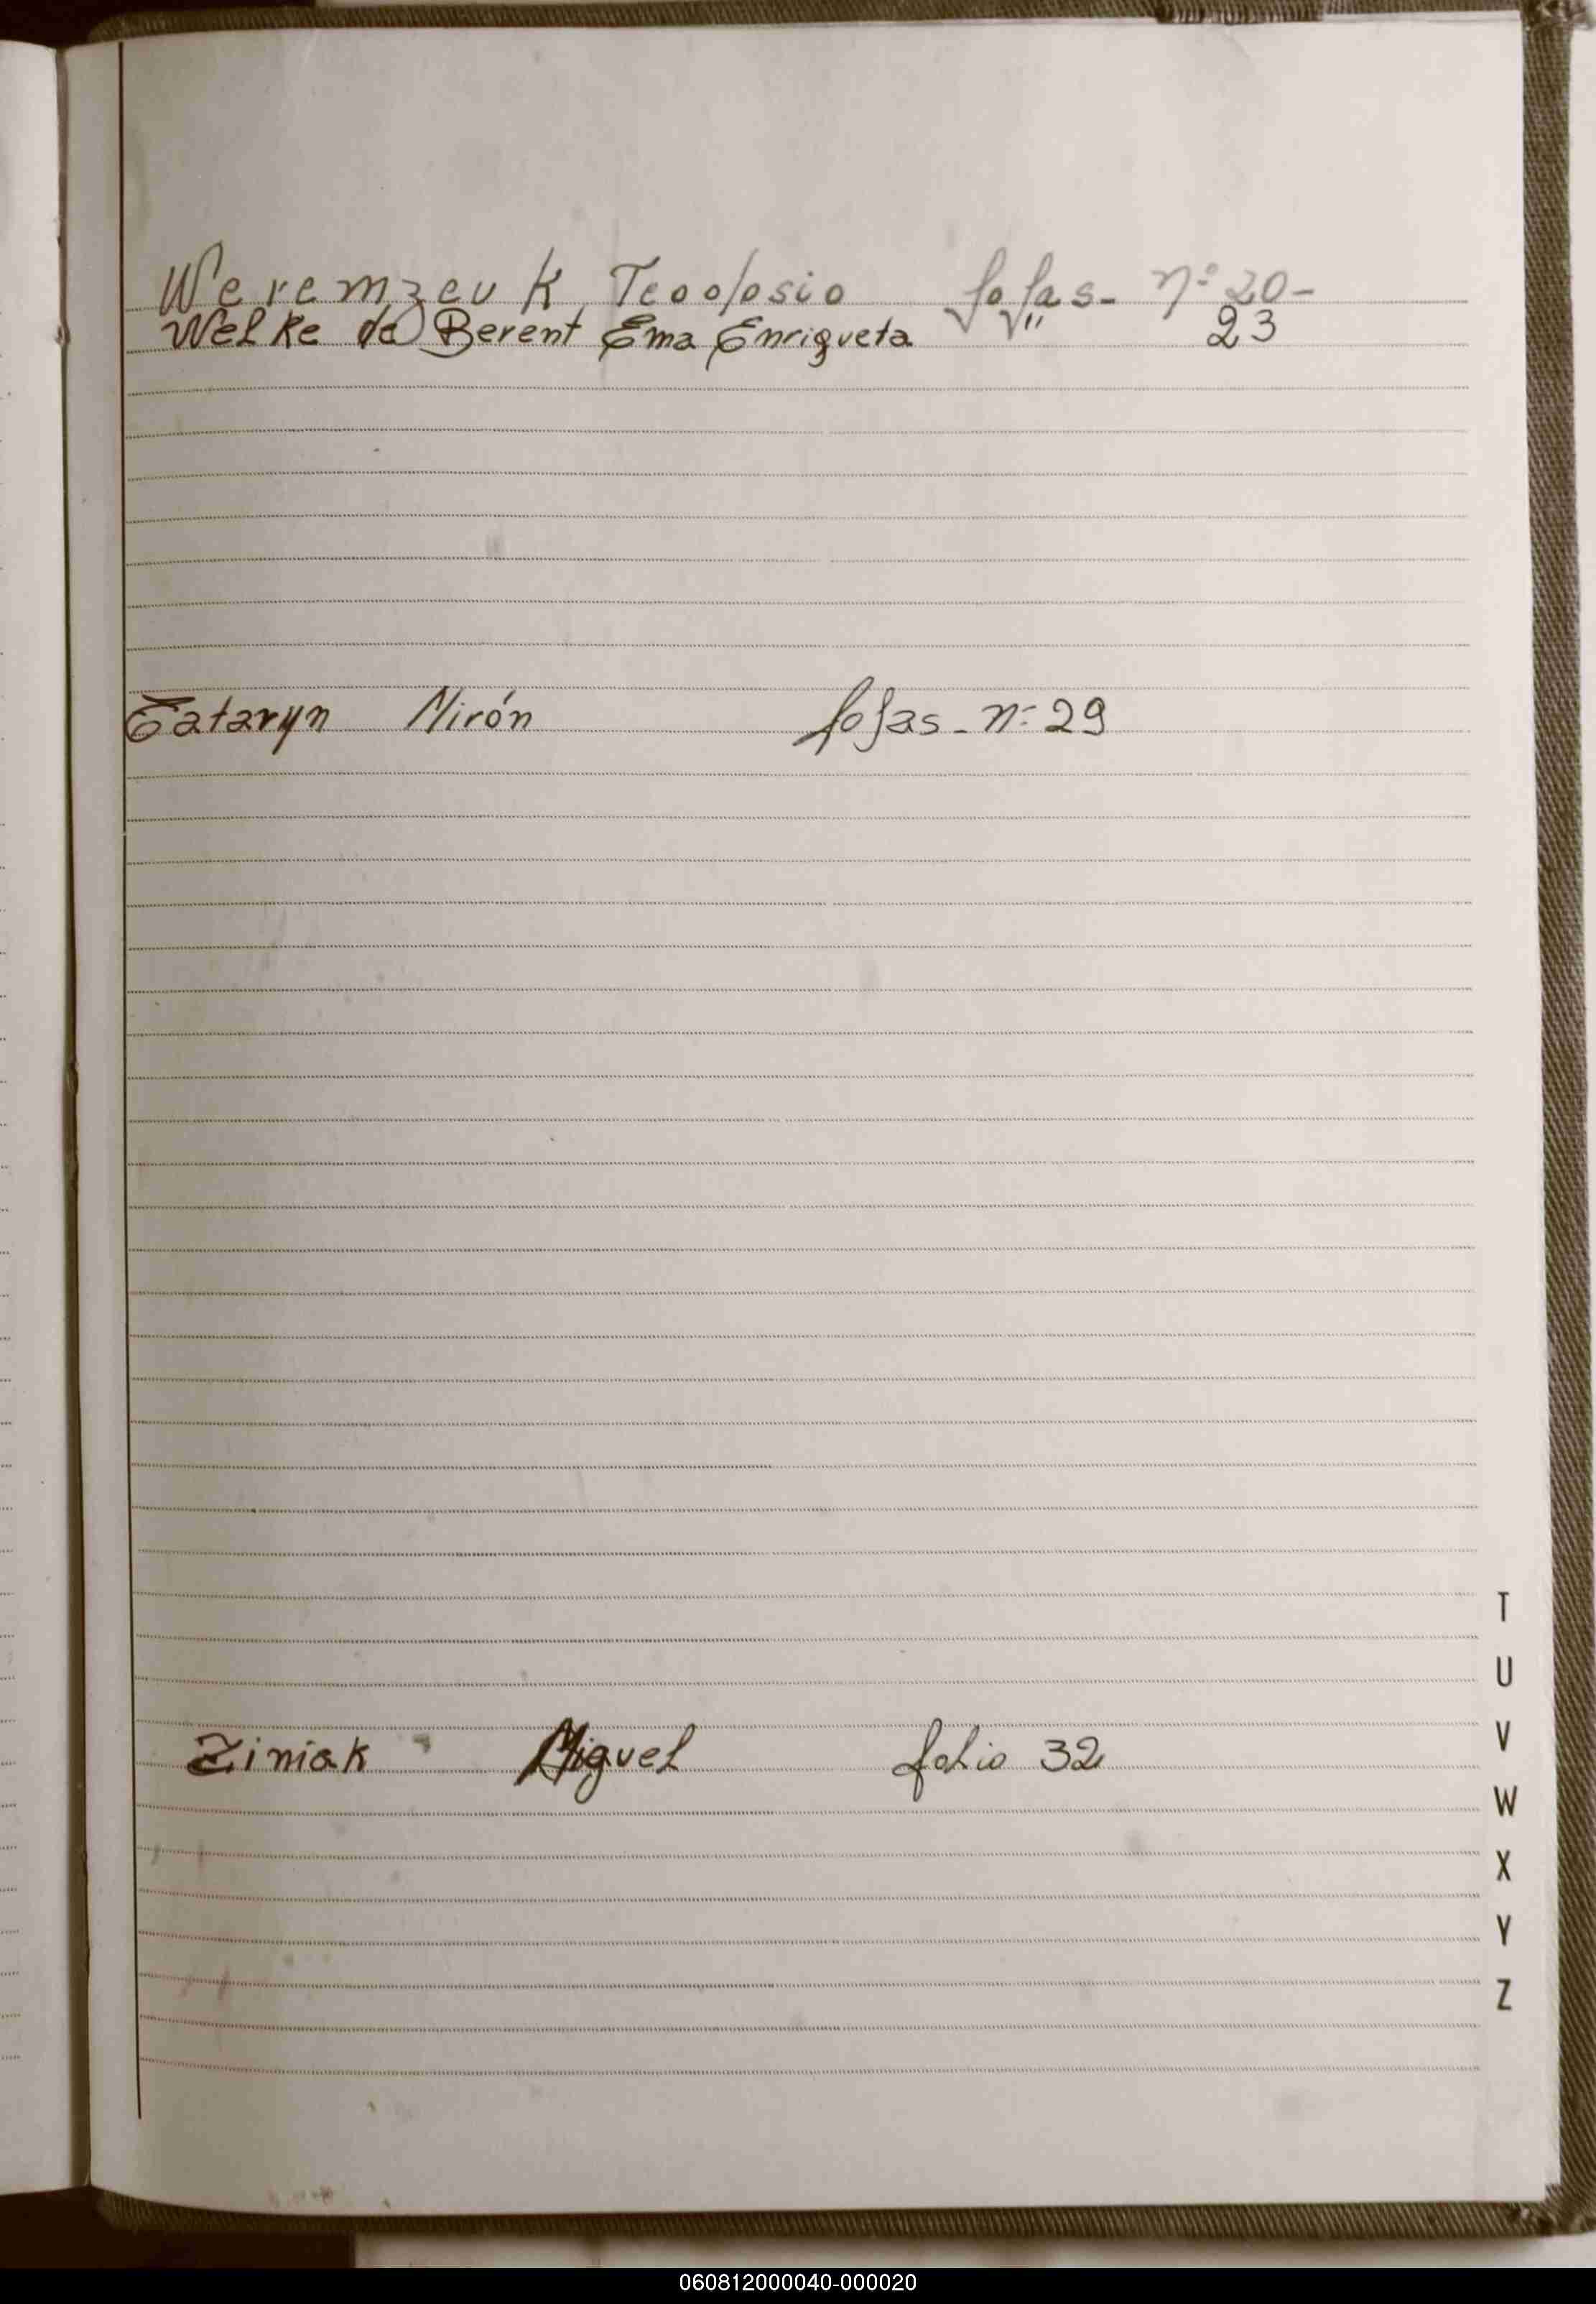 Weremzeuk Teodosio fojas- nº 20-
Welke de Berent Ema Enriqueta " 23
Tataryn Mirón fojas- nº 29
Ziniak Miguel folio 32
T
U
V
W
X
Y
Z
060812000040-000020